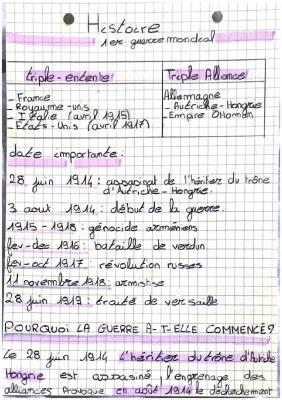 Histoire
1er guerre mondial
triple-entente
Triple Alliance
- France
- Royaume-unis
- Italie (avril 1915)
- États-Unis (avril 1917)
Allemagne
- Autriche-Hongrie
- Empire Ottoman
date importante :
28 juin 1914 : assasinat de l'hériter du trône
d'Autriche-Hongrie.
3 aout 1914 : début de la guerre
1915-1918 : génocide arméniens
fev-dec 1916 : bataille de verdun
fev-oct 1917 : révolution russes
11 novembre 1918 : armistise
28 juin 1919 : traité de versaille
POURQUOI LA GUERRE A-T-ELLE COMMENCÉ?
Le 28 juin 1914 l'hériter du trône d'Autriche
Hongrie est assasiné l'engrenage des
alliances Provoque en août 1914 le déclenchement